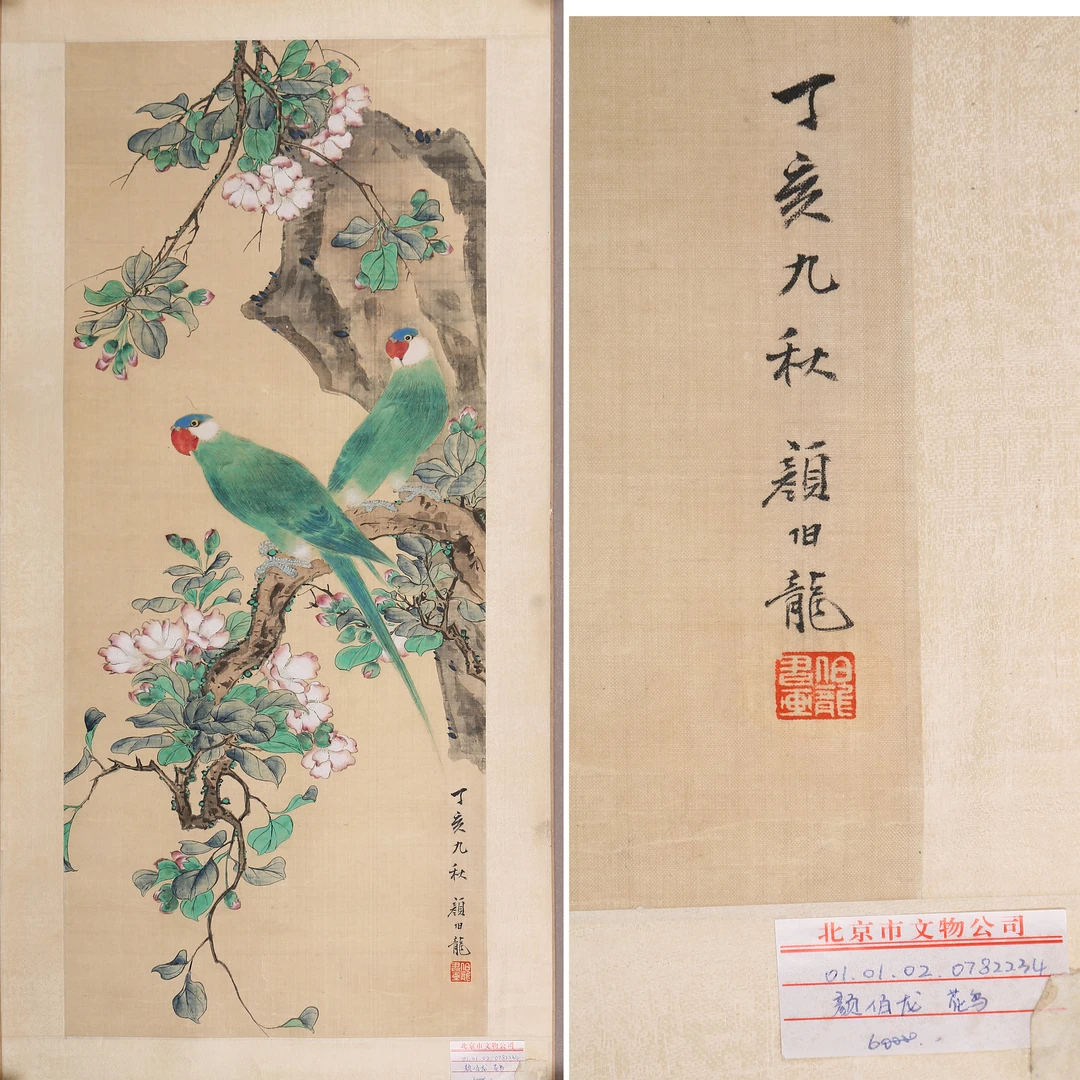 丁亥九秋
顏伯龍
伯龍書畫
北京市文物公司
01.01.02.0782234
颜伯龙 花鸟
丁亥九秋
顏伯龍
伯龍書畫
北京市文物公司
01.01.02.0782234
颜伯龙 花鸟
60000.